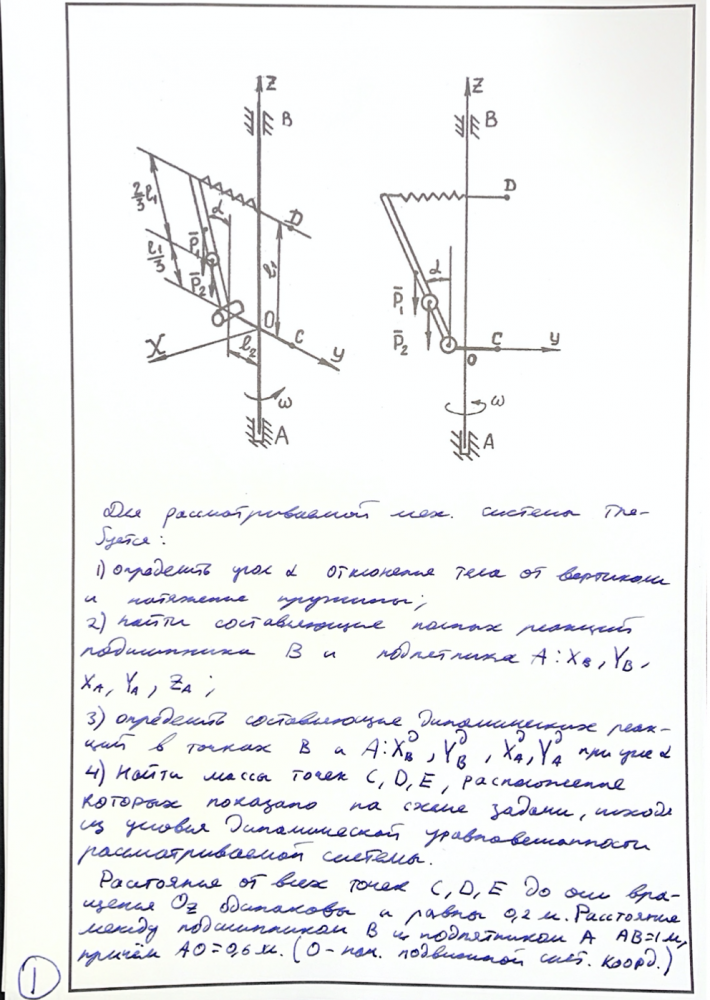 Z
B
Z
B
2/3 l₁
D
D
α
l₁/3
P̄₁
l₁
α
P̄₂
P̄₁
O
C
P̄₂
C
y
X
l₂
y
O
ω
ω
A
A
Для рассматриваемой мех. системы тре-
буется:
1) определить угол α отклонения тела от вертикали
и натяжение пружины;
2) найти составляющие полных реакций
подшипника B и подпятника A: X_B, Y_B,
X_A, Y_A, Z_A;
3) определить составляющие динамических реак-
ций в точках B и A: X_B^д, Y_B^д, X_A^д, Y_A^д при угле α
4) Найти массы точек C, D, E, расположение
которых показано на схеме задачи, исходя
из условия динамической уравновешенности
рассматриваемой системы.
Расстояния от всех точек C, D, E до оси вра-
щения Oz одинаковы и равны 0,2 м. Расстояние
между подшипником B и подпятником A AB=1 м,
причём AO=0,6 м. (O - нач. подвижной сист. коорд.)
1